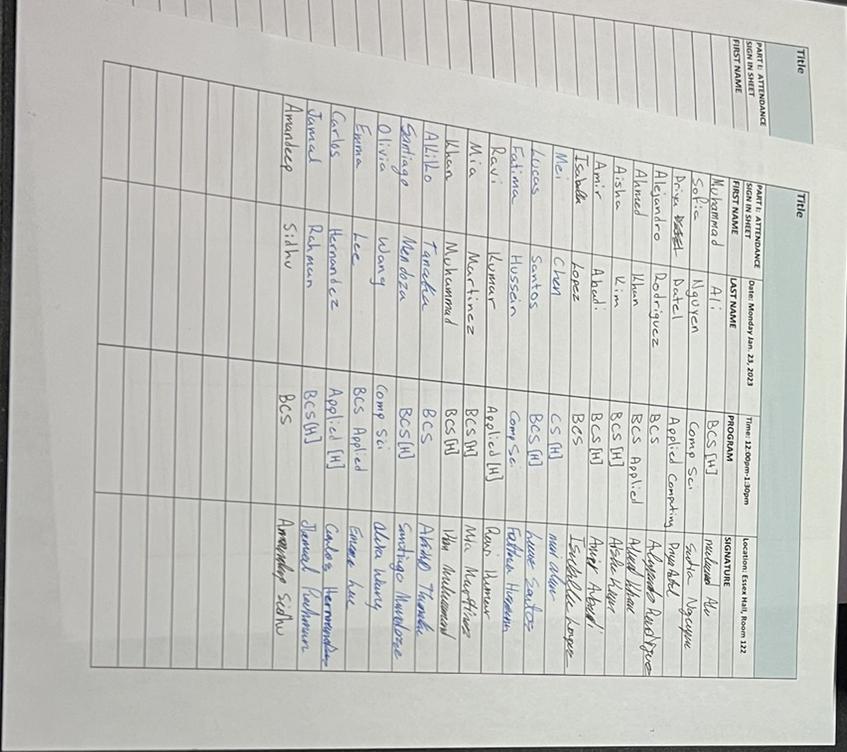 Title
PART I: ATTENDANCE
SIGN IN SHEET
FIRST NAME
Title
PART I: ATTENDANCE Date: Monday Jan. 23, 2023 Time: 12:00pm-1:30pm Location: Essex Hall, Room 122
SIGN IN SHEET
FIRST NAME LAST NAME PROGRAM SIGNATURE
Muhammad Ali BCS [H]
Sofia Nguyen Comp Sci Sofia Nguyen
Priya Patel Applied Computing Priya Patel
Alejandro Rodriguez BCS Alejandro Rodrigue
Ahmed Khan BCS Applied Ahmed Khan
Aisha Kim BCS [H] Aisha
Amir Abadi BCS [H] Amir Abadi
Isabella Lopez BCS Isabella Lopez
Mei Chen CS [H]
Lucas Santos BCS [H] Santos
Fatima Hussein Comp Sci Fatima Hussein
Ravi Kumar Applied [H] Ravi Kumar
Mia Martinez BCS [H] Mia Martinez
Khan Muhammad BCS [H]
Akiko Tanaka BCS
Santiago Mendoza BCS [H] Santiago Mendoza
Olivia Wang Comp Sci Wang
Emma Lee BCS Applied Emma Lee
Carlos Hernandez Applied [H] Carlos Hernandez
Jamal Rahman BCS [H] Jamal Rahman
Amandeep Sidhu BCS Amandeep Sidhu